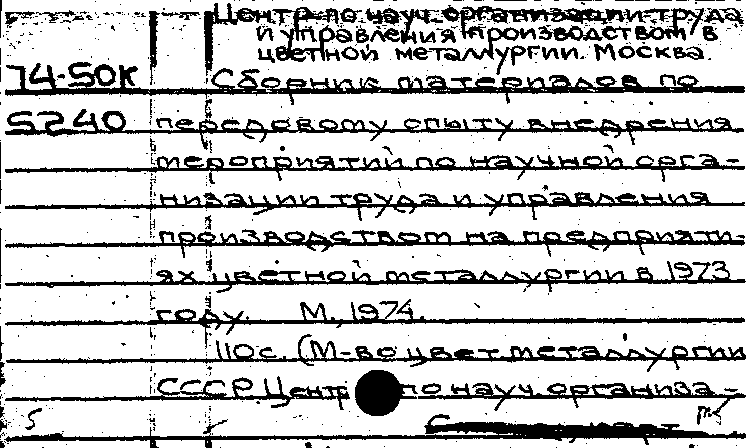 Центр по науч. организации труда
и управления производством в
цветной металлургии. Москва.
74-50К Сборник материалов по
5240 передовому опыту внедрения
мероприятий по научной орга-
низации труда и управления
производством на предприяти-
ях цветной металлургии в 1973
году. М., 1974.
110с. (М-во цвет металлургии
СССР. Центр по науч. организа-
5